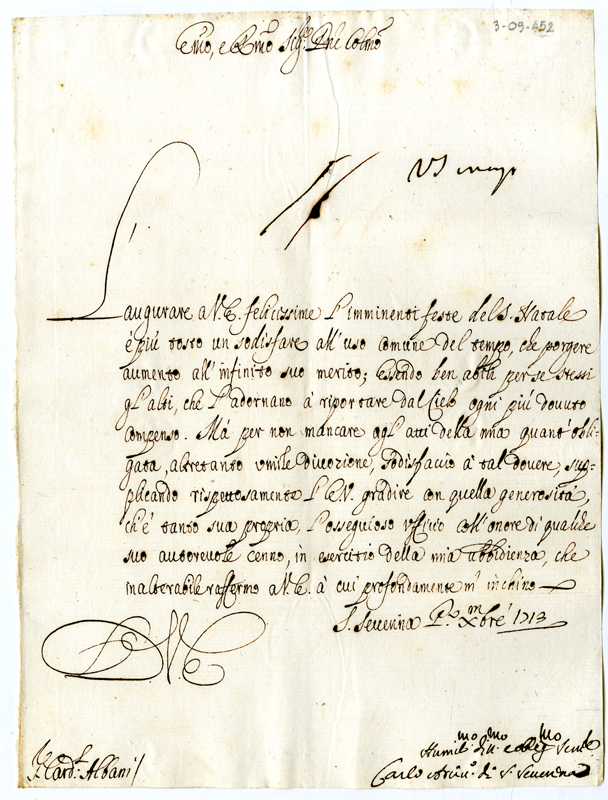 3-09-452
Emo, e Rmo Sigre Pne Colmo
L'augurare a V.E. felicissime l'imminenti feste del S. Natale
è più tosto un sodisfare all'uso comune del tempo, che porgere
aumento all'infinito suo merito; essendo ben abili per se stessi
gl'alti, che l'adornano à riportare dal Cielo ogni più douuto
compenso. Mà per non mancare agl'atti della mia quant'obli-
gata, altretanto umile diuozione, sodisfaccio à tal douere, sup-
plicando rispettosamente l'E.V. gradire con quella generosità,
ch'è tanto sua propria, l'ossequioso uffizio coll'onore di qualche
suo autoreuole cenno, in esercitio della mia ubbidienza, che
inalterabile raffermo a V.E. à cui profondamente m'inchino
S. Seuerina Pmo Xbre 1713
D V.E.
Sr Card. Albani
Humilmo diumo e obligmo Seruo
Carlo Arciuo di S. Seuerina